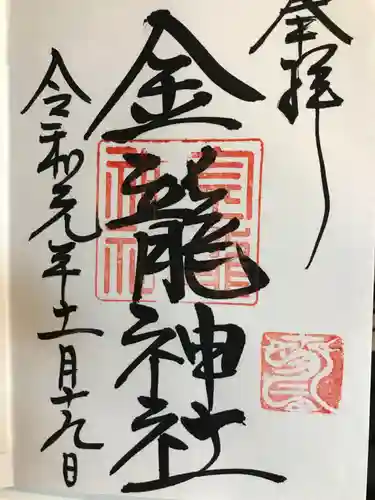 奉拝
金龍神社
令和元年十一月十九日
金龍神社